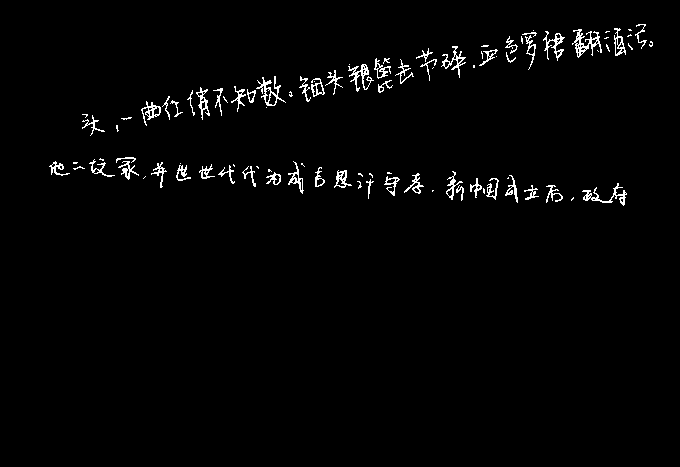 头,一曲红绡不知数。钿头银篦击节碎,血色罗裙翻酒污。
他二坟冢,并世世代代为成吉思汗守孝.新中国成立后,政府